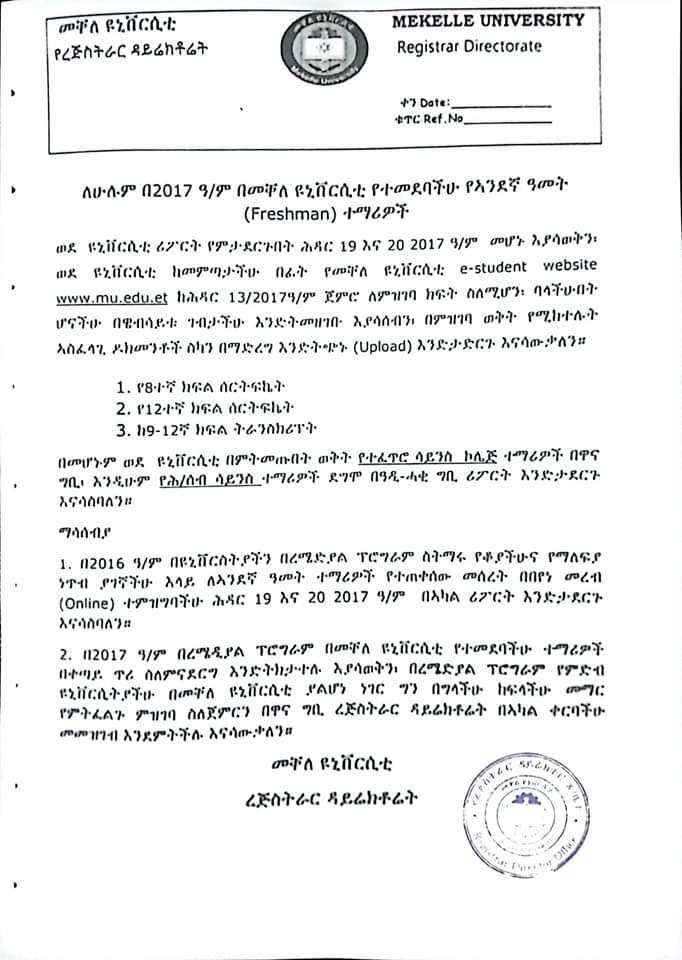 መቐለ ዩኒቨርሲቲ
የረጅስትራር ዳይሬክቶሬት
MEKELLE UNIVERSITY
Registrar Directorate
ቀን Date:
ቁጥር Ref.No
Mekelle University
ለሁሉም በ2017 ዓ/ም በመቐለ ዩኒቨርሲቲ የተመደባችሁ የአንደኛ ዓመት
(Freshman) ተማሪዎች
ወደ ዩኒቨርሲቲ ሪፖርት የምታደርጉበት ሕዳር 19 እና 20 2017 ዓ/ም መሆኑ እያሳወቅን፡
ወደ ዩኒቨርሲቲ ከመምጣታችሁ በፊት የመቐለ ዩኒቨርሲቲ e-student website
www.mu.edu.et ከሕዳር 13/2017ዓ/ም ጀምሮ ለምዝገባ ክፍት ስለሚሆን፡ ባላችሁበት
ሆናችሁ በዌብሳይቱ ገብታችሁ እንድትመዘገቡ እያሳሰብን፡ በምዝገባ ወቅት የሚከተሉት
አስፈላጊ ዶክመንቶች ስካን በማድረግ እንድትጭኑ (Upload) እንድታድርጉ እናሳውቃለን።
1. የ8ተኛ ክፍል ሰርትፍኬት
2. የ12ተኛ ክፍል ሰርትፍኬት
3. ከ9-12ኛ ክፍል ትራንስክሪፕት
በመሆኑም ወደ ዩኒቨርሲቲ በምትመጡበት ወቅት የተፈጥሮ ሳይንስ ኮሌጅ ተማሪዎች በዋና
ግቢ፡ እንዲሁም የሕ/ሰብ ሳይንስ ተማሪዎች ደግሞ በዓዲ-ሓቂ ግቢ ሪፖርት እንድታደርጉ
እናሳስባለን።
ማሳሰብያ
1. በ2016 ዓ/ም በዩኒቨርስትያችን በረሜድያል ፕሮግራም ስትማሩ የቆያችሁና የማለፍያ
ነጥብ ያገኛችሁ እላይ ለአንደኛ ዓመት ተማሪዎች የተጠቀሰው መሰረት በበየነ መረብ
(Online) ተምዝግባችሁ ሕዳር 19 እና 20 2017 ዓ/ም በአካል ሪፖርት እንድታደርጉ
እናሳስባለን።
2. በ2017 ዓ/ም በረሜዲያል ፕሮግራም በመቐለ ዩኒቨርሲቲ የተመደባችሁ ተማሪዎች
በቀጣይ ጥሪ ስለምናደርግ እንድትከታተሉ እያሳወቅን፡ በረሜድያል ፕሮግራም የምድብ
ዩኒቨርሲትያችሁ በመቐለ ዩኒቨርሲቲ ያልሆነ ነገር ግን በግላችሁ ከፍላችሁ መማር
የምትፈልጉ ምዝገባ ስለጀምርን በዋና ግቢ ረጅስትራር ዳይሬክቶሬት በአካል ቀርባችሁ
መመዝገብ እንደምትችሉ እናሳውቃለን።
መቐለ ዩኒቨርሲቲ
ረጅስትራር ዳይሬክቶሬት
Registrar Director Office